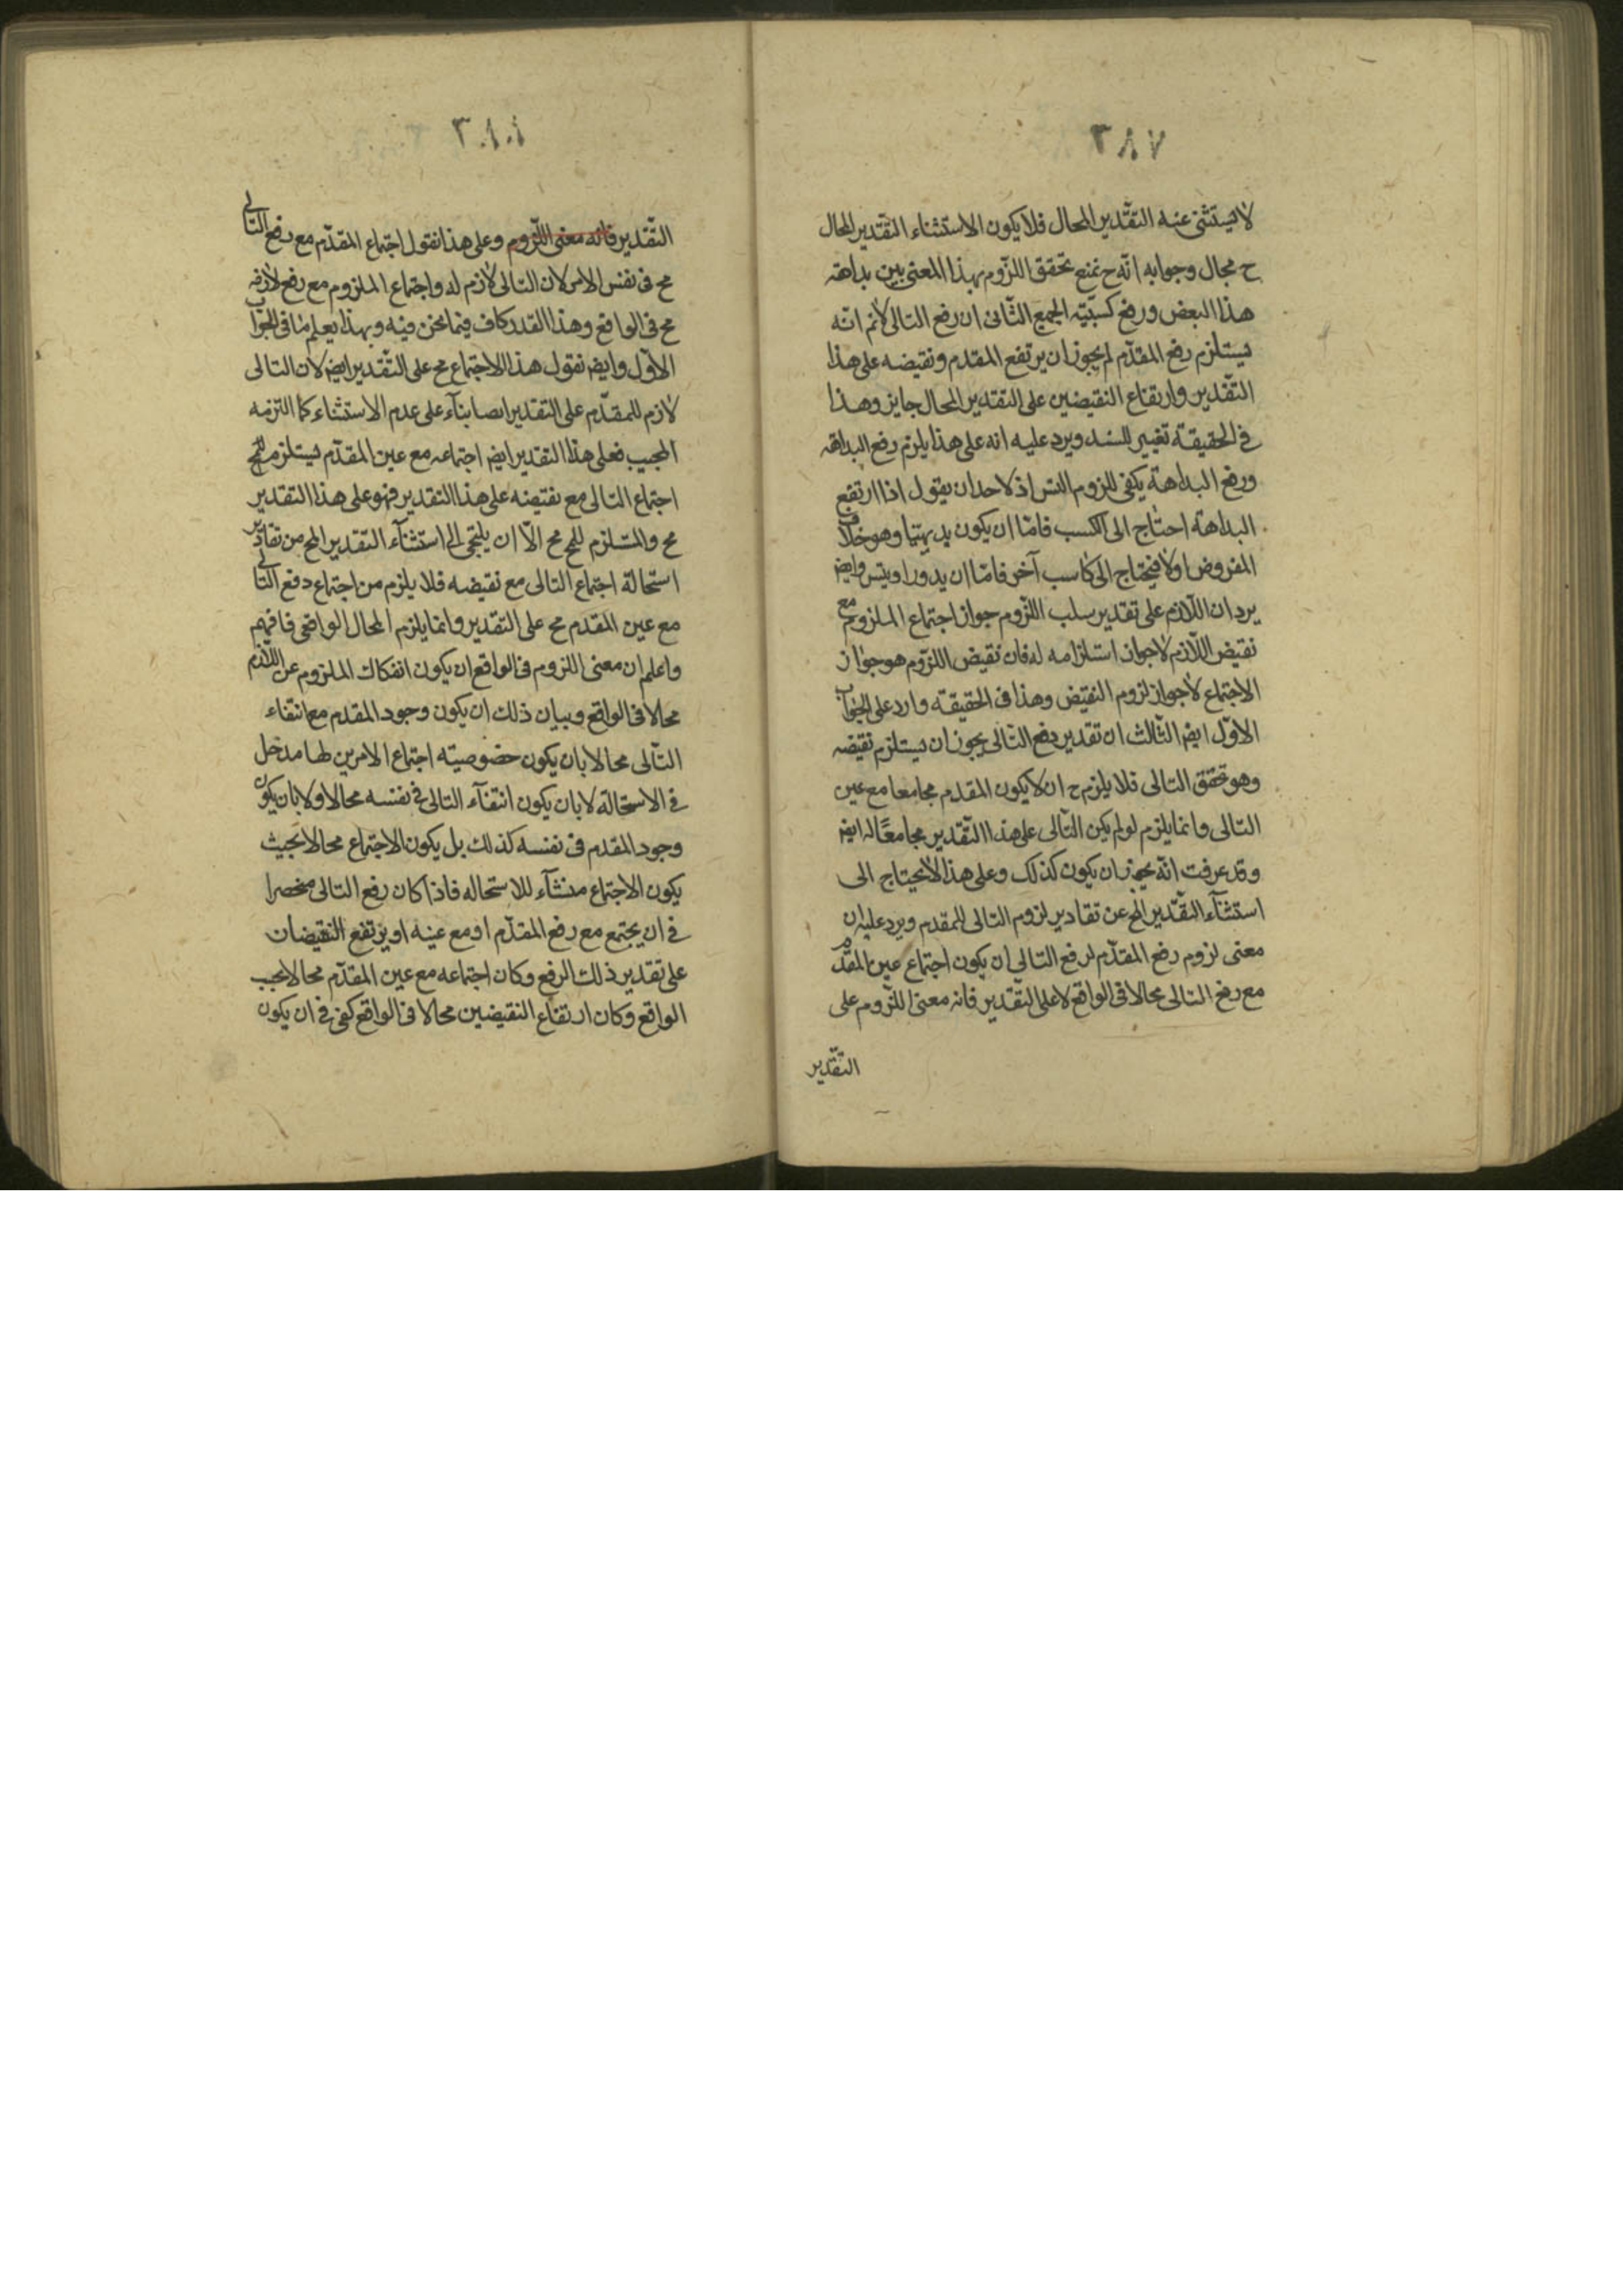 ٣٨٧
لا يستثنى عنه التقدير المحال فلا يكون الاستثناء التقدير المحال
ح مجال وجوابه انه ح نمنع تحقق اللزوم بهذا المعنى بين بداهة
هذا البعض ورفع كسبيّة الجمع الثانى ان رفع التالى لانم انه
يستلزم رفع المقدم لم يجوز ان يرتفع المقدم ونقيضه على هذا
التقدير وارتفاع النقيضين على التقدير المحال جايز وهذا
فى الحقيقة تغيير للسند ويرد عليه انه على هذا يلزم رفع البداهة
ورفع البداهة يكفى للزوم التس اذ لاحد ان يقول اذا ارتفع
البداهة احتاج الى الكسب فامّا ان يكون بديهيّا وهو خلاف
المفروض اولا فيحتاج الى كاسب آخر فامّا ان يدور او يتس وايضا
يرد ان اللازم على تقدير سلب اللزوم جواز اجتماع الملزوم مع
نقيض اللازم لا جواز استلزامه له فان نقيض اللزوم هو جواز
الاجتماع لا جواز لزوم النقيض وهذا فى الحقيقة وارد على الجواب
الاوّل ايضا الثالث ان تقدير رفع التالى يجوز ان يستلزم نقيضه
وهو تحقق التالى فلا يلزم ح ان لا يكون المقدم مجامعا مع عين
التالى وانما يلزم لو لم يكن التالى على هذا التقدير مجامعًا له ايضا
وقد عرفت انّه يجوز ان يكون كذلك وعلى هذا لا يحتاج الى
استثناء التقدير المح عن تقادير لزوم التالى للمقدم ويرد عليه ان
معنى لزوم رفع المقدم لرفع التالى ان يكون اجتماع عين المقدم
مع رفع التالى محالا فى الواقع لا على التقدير فانه معنى اللزوم على
التقدير
٣٨٨
التقدير فانه معنى اللزوم وعلى هذا نقول اجتماع المقدم مع رفع التالى
مح فى نفس الامر لان التالى لازم له واجتماع الملزوم مع رفع لازمه
مح فى الواقع وهذا القدر كاف فيما نحن فيه وبهذا يعلم ما فى الجواب
الاوّل وايضا نقول هذا الاجتماع مح على التقدير ايضا لان التالى
لازم للمقدم على التقدير ايضا بناء على عدم الاستثناء كما التزمه
المجيب فعلى هذا التقدير ايضا اجتماعه مع عين المقدم يستلزم للمح
اجتماع التالى مع نقيضه على هذا التقدير فهو على هذا التقدير
مح والمستلزم للمح مح الّا ان يلتجى الى استثناء التقدير المح من تقادير
استحالة اجتماع التالى مع نقيضه فلا يلزم من اجتماع رفع التالى
مع عين المقدم مح على التقدير وانما يلزم المحال الواقعى فافهم
واعلم ان معنى اللزوم فى الواقع ان يكون انفكاك الملزوم عن اللازم
محالا فى الواقع وبيان ذلك ان يكون وجود المقدم مع انتفاء
التالى محالا بان يكون خصوصيته اجتماع الامرين لها مدخل
فى الاستحالة لا بان يكون انتفاء التالى فى نفسه محالا ولا بان يكون
وجود المقدم فى نفسه كذلك بل يكون الاجتماع محالا بحيث
يكون الاجتماع منشآء للاستحاله فاذا كان رفع التالى منحصرا
فى ان يجتمع مع رفع المقدم او مع عينه او يرتفع النقيضان
على تقدير ذلك الرفع وكان اجتماعه مع عين المقدم محالا بحسب
الواقع وكان ارتفاع النقيضين محالا فى الواقع كفى فى ان يكون